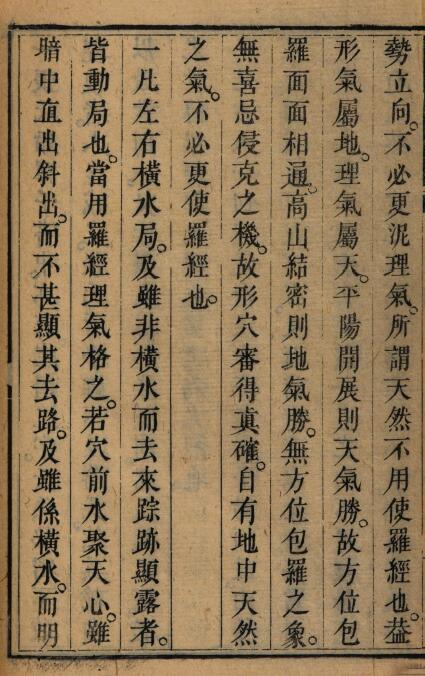 勢立向。不必更泥理氣。所謂天然不用使羅經也。葢
形氣屬地。理氣屬天。平陽開展則天氣勝。故方位包
羅面面相通。高山結密則地氣勝。無方位包羅之象。
無喜忌侵克之機。故形穴審得眞確。自有地中天然
之氣。不必更使羅經也。
一凡左右橫水局。及雖非橫水而去來踪跡顯露者。
皆動局也。當用羅經理氣格之。若穴前水聚天心。雖
暗中直出斜出。而不甚顯其去路。及雖係橫水。而明